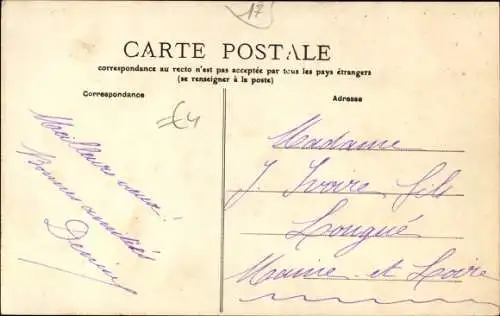 17
CARTE POSTALE
correspondance au recto n'est pas acceptée par tous les pays étrangers
(se renseigner à la poste)
Correspondance
Adresse
€4
Meilleurs vœux!
Bonnes amitiés
Madame
J. Ivoire fils
Longué
Maine et Loire